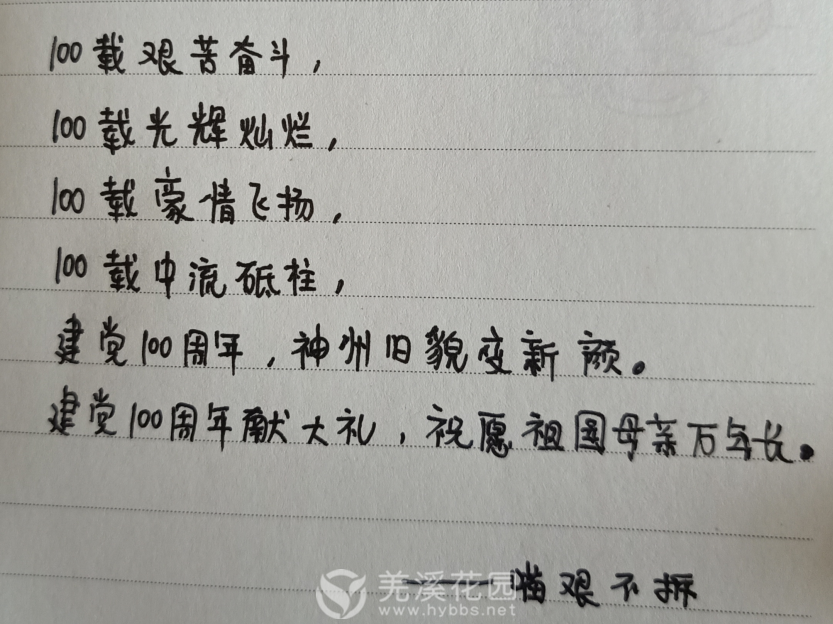 100载艰苦奋斗，
100载光辉灿烂，
100载豪情飞扬，
100载中流砥柱，
建党100周年，神州旧貌变新颜。
建党100周年献大礼，祝愿祖国母亲万年长。
——猫艰不拆
羌溪花园
www.hybbs.net